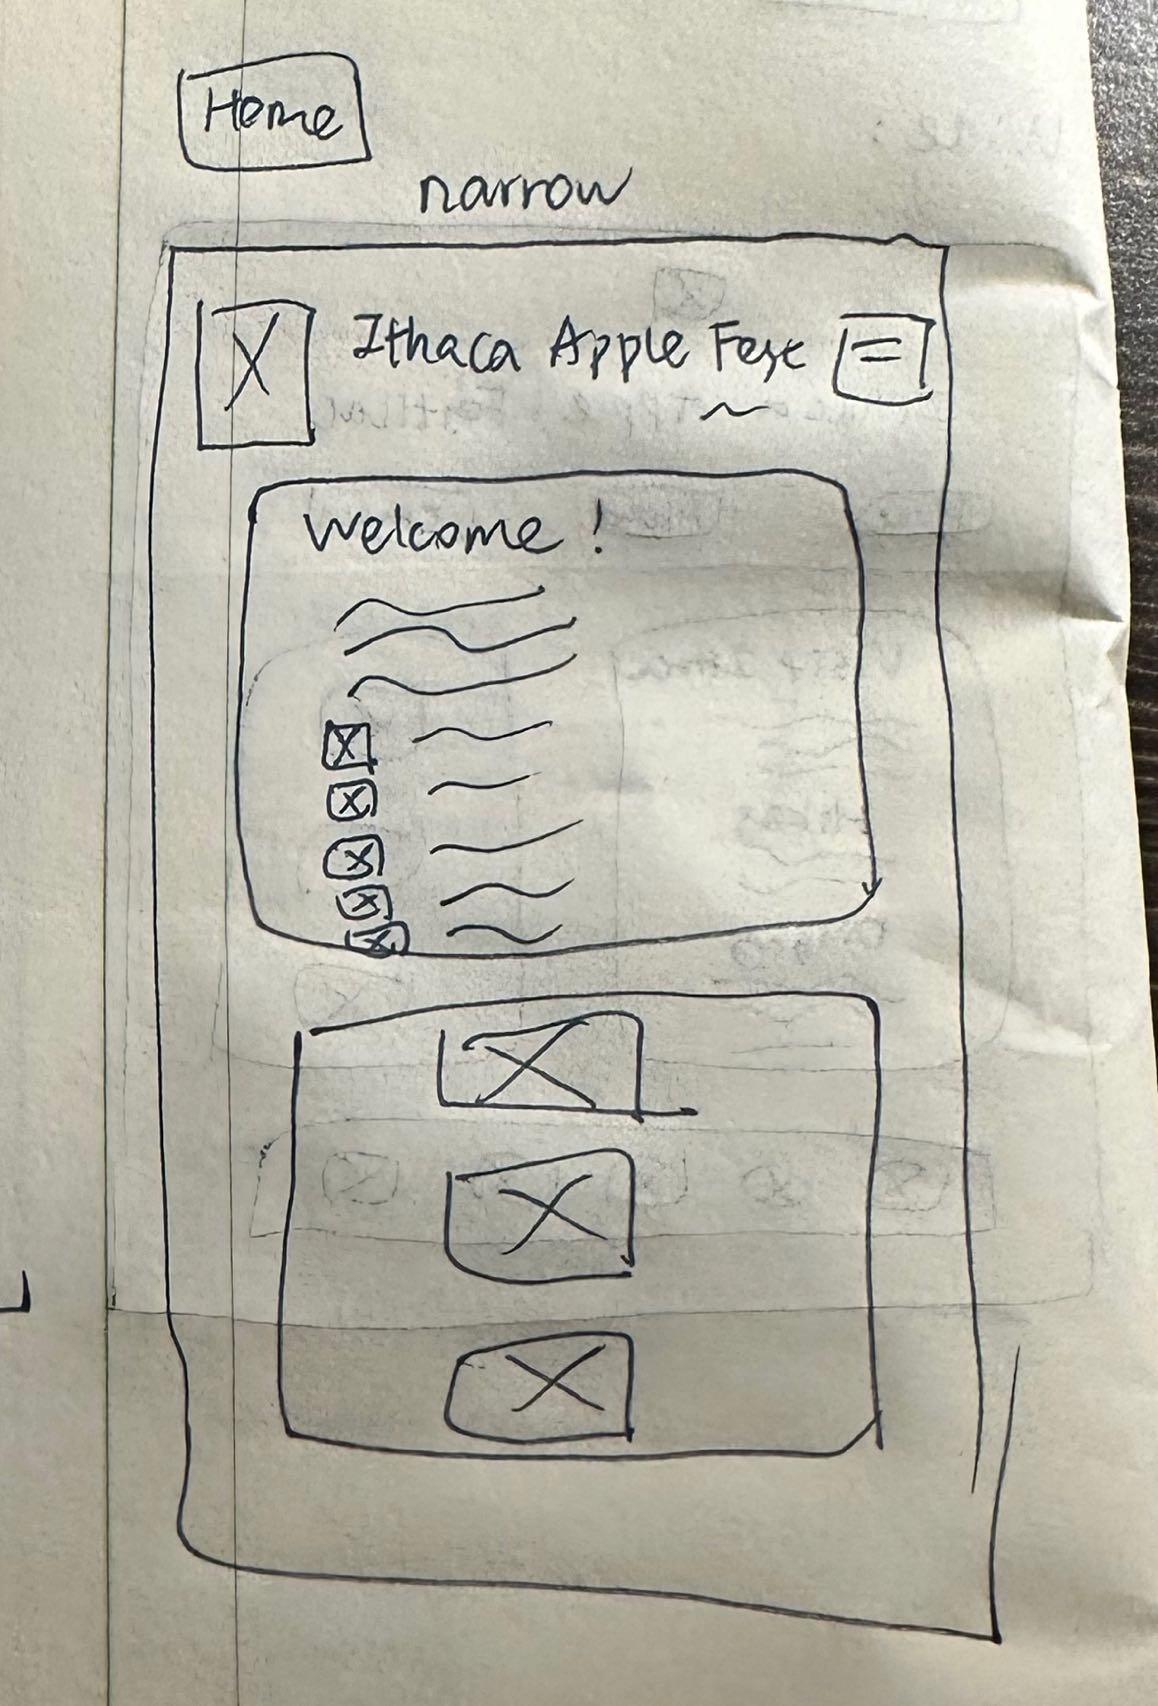 Home
narrow
Ithaca Apple Fest
Welcome!